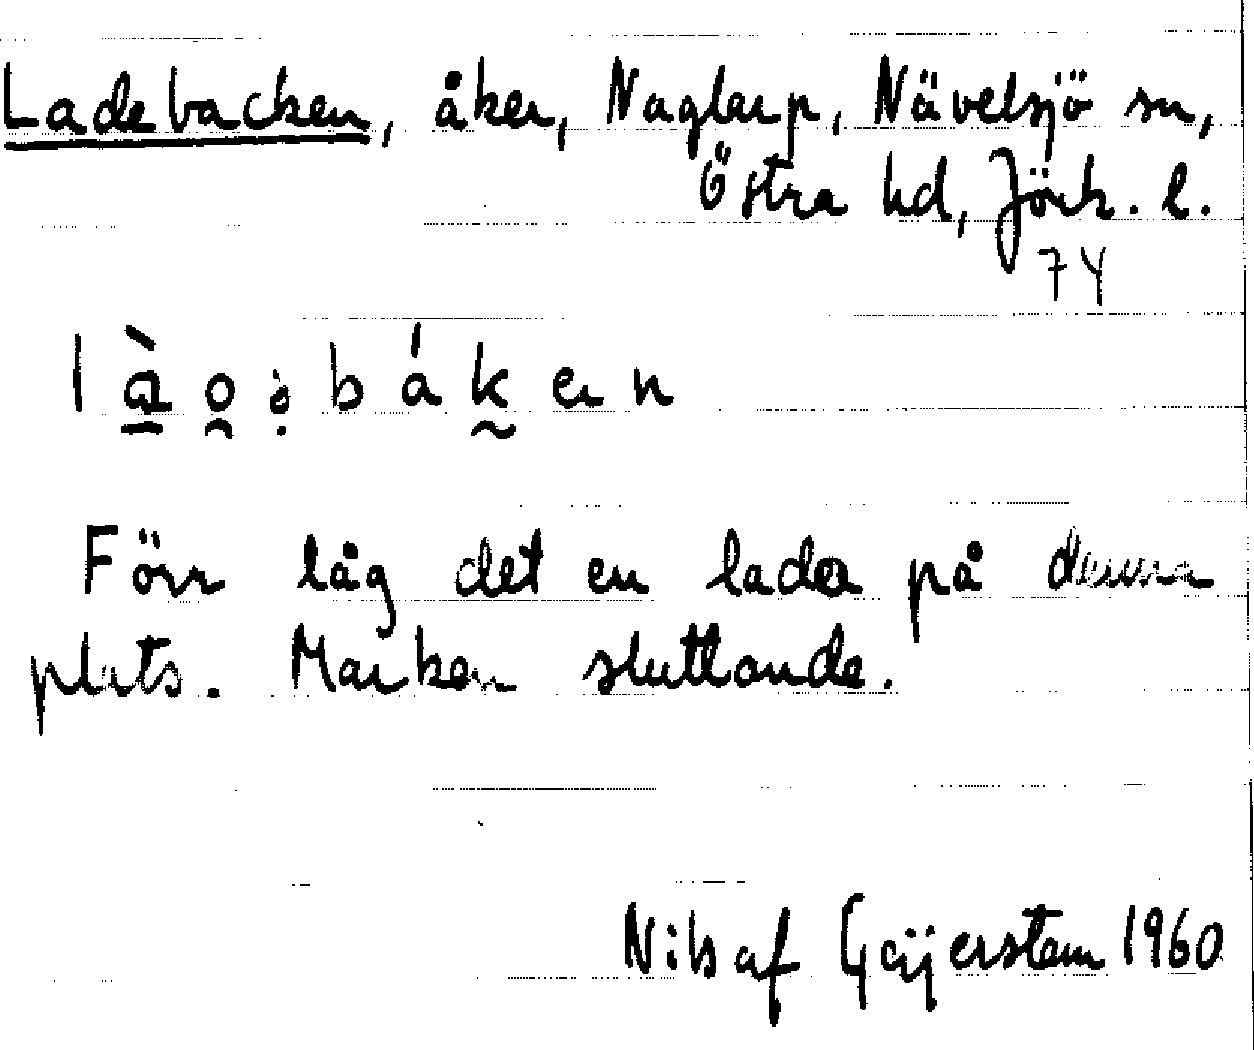 Ladebacken, åker, Naglarp, Nävelsjö sn,
Östra hd, Jönk. l.
74
Förr låg det en lada på denna
plats. Marken sluttande.
Nils af Geijerstam 1960